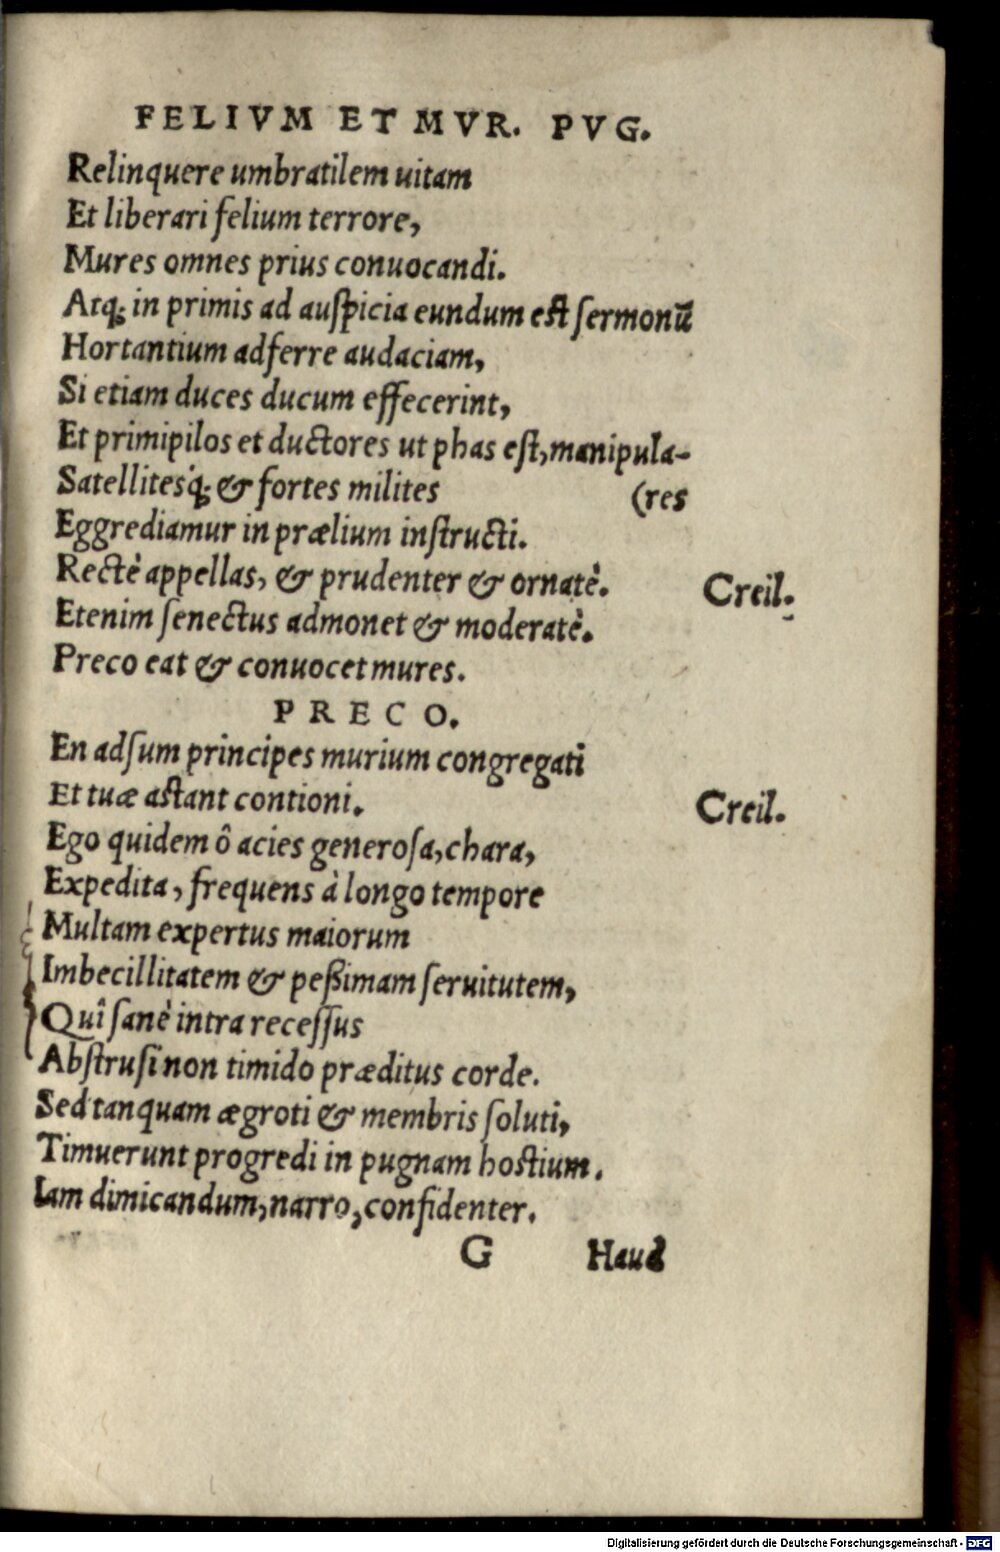 FELIVM ET MVR. PVG.
Relinquere umbratilem uitam
Et liberari felium terrore,
Mures omnes prius conuocandi.
Atq; in primis ad auſpicia eundum eſt ſermonū
Hortantium adferre audaciam,
Si etiam duces ducum effecerint,
Et primipilos et ductores ut phas eſt, manipula-
Satellitesq́; & fortes milites (res
Eggrediamur in prælium inſtructi.
Rectè appellas, & prudenter & ornatè. Creil.
Etenim ſenectus admonet & moderatè.
Preco eat & conuocet mures.
PRECO.
En adſum principes murium congregati
Et tuæ aſtant contioni. Creil.
Ego quidem ô acies generoſa, chara,
Expedita, frequens à longo tempore
Multam expertus maiorum
Imbecillitatem & peßimam ſeruitutem,
Quî ſanè intra receſſus
Abſtruſi non timido præditus corde.
Sed tanquam ægroti & membris ſoluti,
Timuerunt progredi in pugnam hoſtium.
Iam dimicandum, narro, confidenter.
G Haud
Digitalisierung gefördert durch die Deutsche Forschungsgemeinschaft - DFG